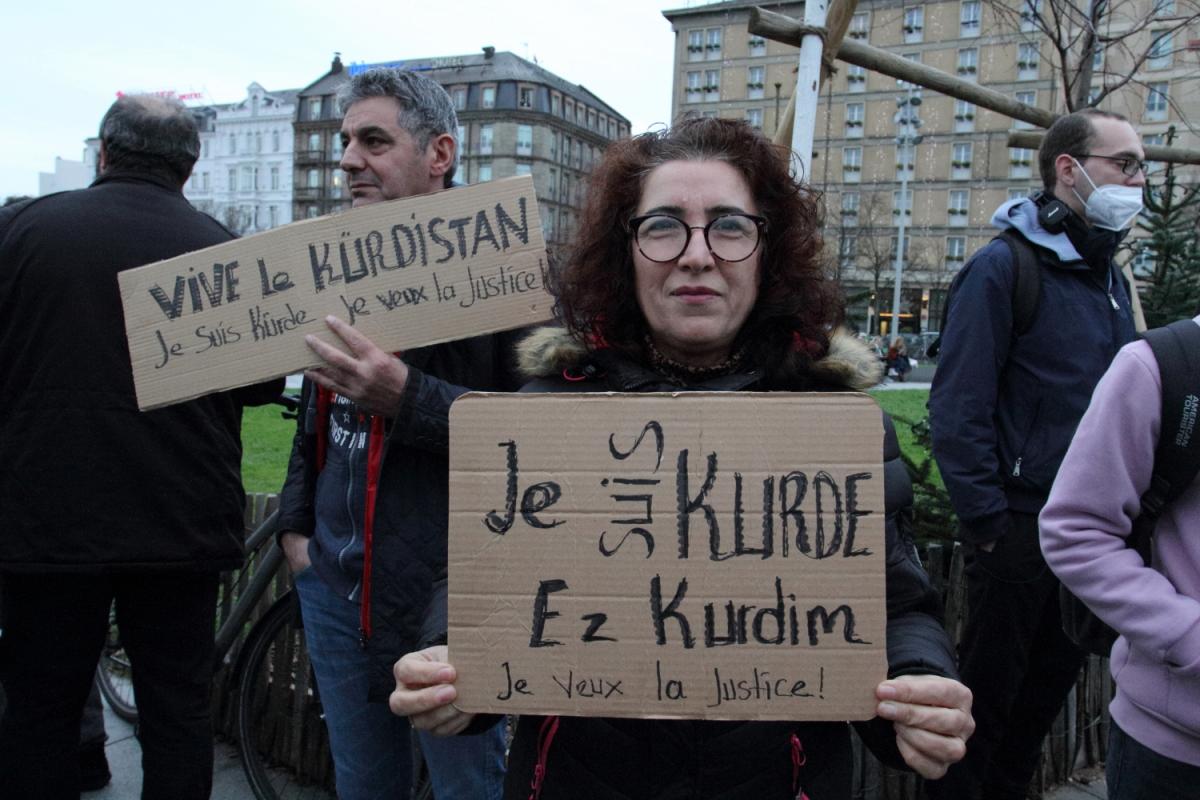 VIVE Le KÜRDISTAN
Je Suis Kürde je veux la Justice!
Je suis KURDE
Ez Kurdim
Je veux la justice!
AMERICAN
TOURISTER